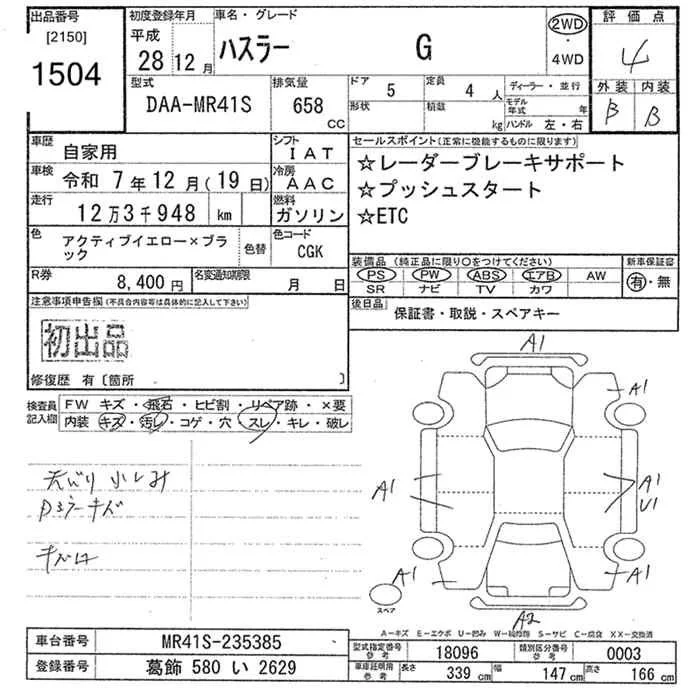 出品番号 初度登録年月 車名・グレード 評価点
[2150] 平成 ハスラー G 2WD 4
1504 28 12月 ・4WD 外装 内装
B B
型式 排気量 ドア 5 定員 4人 ディーラー・並行
DAA-MR41S 658 CC 形状 積載 kg モデル年式 年
ハンドル 左・右
車歴 自家用 シフト IAT セールスポイント(正常に機能するものに限ります)
車検 令和 7年12月(19日) 冷房 AAC ☆レーダーブレーキサポート
走行 12万3千948 km 燃料 ガソリン ☆プッシュスタート
☆ETC
色 アクティブイエロー×ブラック 色替 色コード CGK
装備品 (純正品に限り○をつけてください) 新車保証書
PS PW ABS エアB AW 有・無
SR ナビ TV カワ
R券 8,400円 名変通知期限 月 日
後日品 保証書・取説・スペアキー
注意事項申告欄(不具合内容等は具体的に記入して下さい)
初出品
修復歴 有〔箇所 〕
検査員記入欄 FW キズ・飛石・ヒビ割・リペア跡・×要
内装 キズ・汚れ・コゲ・穴・スレ・キレ・破レ
A1
A1
A1
A1
U1
A1
A1
A2
スペア
A-キズ E-エクボ U-凹み W-補修跡 S-サビ C-腐食 XX-交換済
車台番号 MR41S-235385
登録番号 葛飾 580 い 2629
型式指定番号 参考 18096 類別区分番号 参考 0003
車庫証明用 参考 長さ 339 cm 幅 147 cm 高さ 166 cm